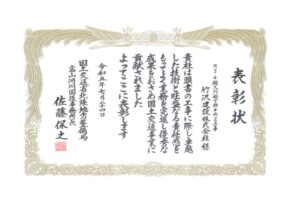 表彰状
竹沢建設株式会社 様
貴社は頭書の工事に際し卓越
した技術と旺盛なる責任感を
もってよく業務を完遂し優秀な
成果をおさめ国土交通事業に
貢献されました
よってここに表彰します
令和五年七月二十四日
国土交通省北陸地方整備局
富山河川国道事務所長
佐藤保之